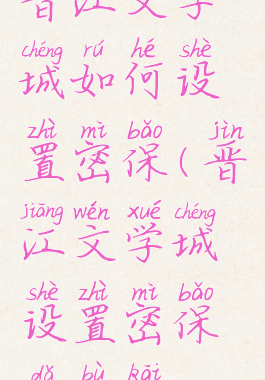 晋江文学
chéng rú hé shè
城如何设
zhì mì bǎo jìn
置密保(晋
jiāng wén xué chéng
江文学城
shè zhì mì bǎo
设置密保
dǎ bù kāi